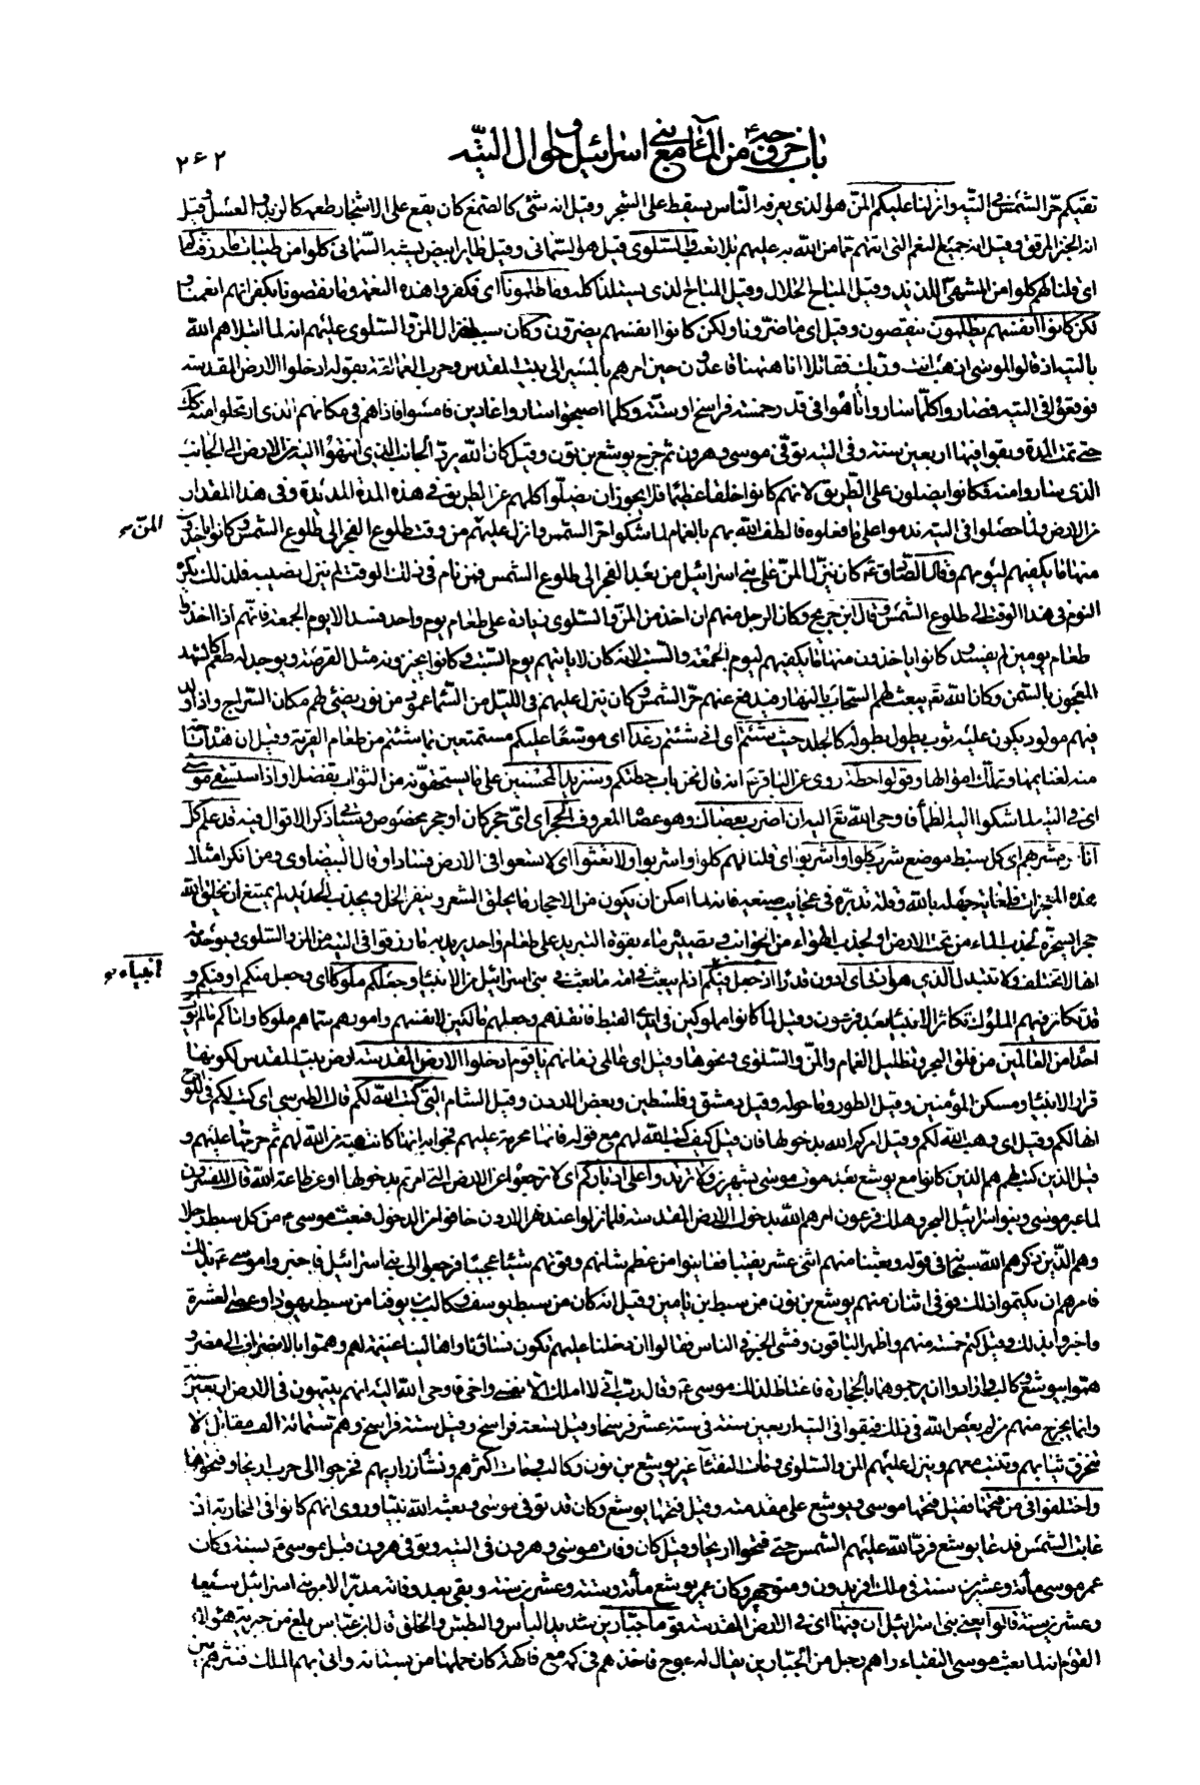 باب خروجه ع من الماء مع بني اسرائيل و احوال التيه
٢٤٢
تقيكم حرّ الشمس في التيه وانزلنا عليكم المنّ هو الذي يعرفه الناس يسقط على الشجر وقيل انه شئ كالصمغ كان يقع على الاشجار طعمه كالزبد والعسل وقيل
انه الخبز المرقق وقيل انه جميع النعم التي اتتهم مما من الله به عليهم بلا تعب والسلوى قيل هو السماني وقيل طاير ابيض يشبه السماني كلوا من طيبات ما رزقناكم
اي قلنا لهم كلوا من المشهى اللذيذ وقيل المباح الحلال وقيل المباح الذي يستلذ اكله وما ظلمونا اي فكفروا هذه النعمة وما نقصونا بكفرانهم انعمنا و
لكن كانوا انفسهم يظلمون ينقصون وقيل اي ما ضرّونا ولكن كانوا انفسهم يضرّون وكان سبب انزال المنّ والسلوى عليهم انه لما ابتلاهم الله
بالتيه اذ قالوا لموسى اذهب انت وربك فقاتلا انا ههنا قاعدون حين امرهم بالمسير الى بيت المقدس وحرب العمالقة بقوله ادخلوا الارض المقدسة
فوقعوا في التيه فصاروا كلّما ساروا تاهوا في قدر خمسة فراسخ او ستة وكلما اصبحوا ساروا غادين فامسوا فاذا هم في مكانهم الذي ارتحلوا منه كذلك
حتى تمت المدة وبقوا فيها اربعين سنة وفي التيه توفّي موسى وهرون ثم خرج يوشع بن نون وقيل كان الله يردّ الجانب الذي انتهوا اليه من الارض الى الجانب
الذي ساروا منه فكانوا يضلون على الطّريق لانهم كانوا خلقا عظيما فلا يجوز ان يضلّوا كلهم عن الطريق في هذه المدة المديدة وفي هذا المقدار
من الارض ولما حصلوا في التيه ندموا على ما فعلوه فالطف الله بهم بالغمام لما شكوا حرّ الشمس وانزل عليهم من وقت طلوع الفجر الى طلوع الشمس فكانوا ياخذون
المنّ
منها ما يكفيهم ليومهم وقال الصّادق ع كان ينزل المنّ على بني اسرائيل من بعد الفجر الى طلوع الشمس فمن نام في ذلك الوقت لم ينزل نصيبه فلذلك يكره
النوم في هذا الوقت الى طلوع الشمس قال ابن جريج وكان الرجل منهم ان اخذ من المنّ والسلوى زيادة على طعام يوم واحد فسد الا يوم الجمعة فانّهم اذا اخذوا
طعام يومين لم يفسد وكانوا ياخذون منها ما يكفيهم ليوم الجمعة والسبت لانه كان لا ياتيهم يوم السبت وكانوا يخبزونه مثل القرصة ويوجد له طعم كالشهد
المعجون بالسمن وكان الله تع يبعث لهم السحاب بالنهار فيدفع عنهم حرّ الشمس وكان ينزل عليهم في الليل من السماء عمود من نور يضئ لهم مكان السراج واذا ولد
فيهم مولود يكون عليه ثوب يطول بطوله كالجلد حيث شئتم اي انّى شئتم رغدا اي موسّعا عليكم مستمتعين بما شئتم من طعام القرية وقيل ان هذه اباحة
منه لغنايمها وتملك اموالها وقولوا حطّة روى عن الباقر ع انه قال نحن باب حطتكم وسنزيد المحسنين على ما يستحقونه من الثواب تفضلا واذ استسقى موسى
اي في التيه لما شكوا اليه الظمأ فاوحى الله تع اليه ان اضرب بعصاك وهو عصا المعروف الحجر اي ايّ حجر كان او حجر مخصوص وسيأتي ذكر الاقوال فيه قد علم كل
اناس مشربهم اي كل سبط موضع شربه كلوا واشربوا اي قلنا لهم كلوا واشربوا ولا تعثوا اي لا تسعوا في الارض فسادا وقال البيضاوي ومن انكر امثال
هذه المعجزات فلغاية جهله بالله وقلة تدبّره في عجايب صنعه فانه لما امكن ان يكون من الاحجار ما يحلق الشعر وينفر الخل ويجذب الحديد لم يمتنع ان يخلق الله
حجرا يسخّره لجذب الماء من تحت الارض او لجذب الهواء من الجوانب وتصييره ماء بقوة التبريد على طعام واحد يريد به ما رزقوا في التيه من المن والسلوى وبوحدته
انها لا تختلف ولا تتبدل الذي هو ادنى اي ادون قدرا اذ جعل فيكم انبياء اذ لم يبعث في امة ما بعث في بني اسرائيل من الانبياء وجعلكم ملوكا اي جعل منكم او فيكم و
انبياء
قد تكاثر فيهم الملوك تكاثر الانبياء بعد فرعون وقيل لما كانوا مملوكين في ايدي القبط فانقذهم وجعلهم مالكين لانفسهم وامورهم سماهم ملوكا واتاكم ما لم يؤت
احدا من العالمين من فلق البحر وتظليل الغمام والمنّ والسلوى ونحوها وقيل اي عالمي زمانهم يا قوم ادخلوا الارض المقدسة ارض بيت المقدس لكونها
قرار الانبياء ومسكن المؤمنين وقيل الطور وما حوله وقيل دمشق وفلسطين وبعض الاردن وقيل الشام التي كتب الله لكم قال الطبرسي اي كتب لكم في اللوح
انها لكم وقيل اي وهب الله لكم وقيل امركم الله بدخولها فان قيل كيف كتب الله لهم مع قوله فانها محرمة عليهم فجوابه انها كانت هبة من الله لهم ثم حرّمها عليهم و
قيل الذين كتب لهم هم الذين كانوا مع يوشع بعد موت موسى بشهرين ولا ترتدوا على ادباركم اي لا ترجعوا عن الارض التي امرتم بدخولها او عن طاعة الله قال المفسّرون
لما عبر موسى وبنو اسرائيل البحر وهلك فرعون امرهم الله بدخول الارض المقدسة فلما نزلوا عند نهر الاردن خافوا من الدخول فبعث موسى ع من كل سبط رجلا
وهم الذين ذكرهم الله سبحانه في قوله وبعثنا منهم اثني عشر نقيبا فعاينوا من عظم شانهم وقوتهم شيئا عجيبا فرجعوا الى بني اسرائيل فاخبروا موسى ع بذلك
فامرهم ان يكتموا ذلك فوفى اثنان منهم يوشع بن نون من سبط بن يامين وقيل انه كان من سبط يوسف وكالب بن يوفنا من سبط يهودا وعصى العشرة
واخبروا بذلك وقيل كتم خمسة منهم واظهر الباقون وفشى الخبر في الناس فقالوا ان دخلنا عليهم تكون نساؤنا واهالينا غنيمة لهم وهموا بالانصراف الى مصر و
هموا بيوشع وكالب وارادوا ان يرجموهما بالحجارة فاغتاظ لذلك موسى ع وقال ربّ اني لا املك الا نفسي واخي فاوحى الله اليه انهم يتيهون في الارض اربعين سنة
وانما يخرج منهم من لم يعص الله في ذلك فبقوا في التيه اربعين سنة في ستة عشر فرسخا وقيل تسعة فراسخ وقيل ستة فراسخ وهم ستمائة الف مقاتل لا
تنخرق ثيابهم وتثبت معهم وينزل عليهم المن والسلوى وماتت النقباء غير يوشع بن نون وكالب ومات اكثرهم ونشأ ذراريهم فخرجوا الى حرب اريحا وفتحوها
واختلفوا في من فتحها فقيل فتحها موسى ويوشع على مقدمته وقيل فتحها يوشع وكان قد توفي موسى وبعثه الله نبيّا وروى انهم كانوا في المحاربة اذ
غابت الشمس فدعا يوشع فردّ الله عليهم الشمس حتى فتحوا اريحا وقيل كان وفات موسى وهرون في التيه وتوفي هرون قبل موسى ع بسنة وكان
عمر موسى مأة وعشرين سنة في ملك افريدون ومنوچهر وكان عمر يوشع مأة وستة وعشرين سنة وبقي بعد وفاته مدبّرا لامر بني اسرائيل سبعا
وعشرين سنة قالوا يعني بني اسرائيل ان فيها اي في الارض المقدسة قوما جبّارين شديد البأس والبطش والخلق قال ابن عبّاس بلغ من جبرية هؤلاء
القوم انه لما بعث موسى النقباء راهم رجل من الجبّارين يقال له عوج فاخذهم في كمه مع فاكهة كان حملها من بستانه واتى بهم الملك فنثرهم بين